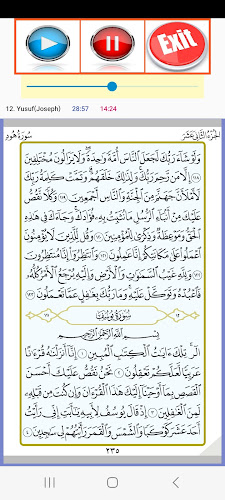 Exit
12. Yusuf(Joseph) 28:57 14:24
الجزء الثاني عشر
سورة هود
وَلَوْ شَآءَ رَبُّكَ لَجَعَلَ ٱلنَّاسَ أُمَّةً وَٰحِدَةً وَلَا يَزَالُونَ مُخْتَلِفِينَ
١١٨ إِلَّا مَن رَّحِمَ رَبُّكَ وَلِذَٰلِكَ خَلَقَهُمْ وَتَمَّتْ كَلِمَةُ رَبِّكَ
لَأَمْلَأَنَّ جَهَنَّمَ مِنَ ٱلْجِنَّةِ وَٱلنَّاسِ أَجْمَعِينَ ١١٩ وَكُلًّا نَّقُصُّ
عَلَيْكَ مِنْ أَنۢبَآءِ ٱلرُّسُلِ مَا نُثَبِّتُ بِهِۦ فُؤَادَكَ وَجَآءَكَ فِى هَٰذِهِ
ٱلْحَقُّ وَمَوْعِظَةٌ وَذِكْرَىٰ لِلْمُؤْمِنِينَ ١٢٠ وَقُل لِّلَّذِينَ لَا يُؤْمِنُونَ
ٱعْمَلُوا۟ عَلَىٰ مَكَانَتِكُمْ إِنَّا عَٰمِلُونَ ١٢١ وَٱنتَظِرُوٓا۟ إِنَّا مُنتَظِرُونَ
١٢٢ وَلِلَّهِ غَيْبُ ٱلسَّمَٰوَٰتِ وَٱلْأَرْضِ وَإِلَيْهِ يُرْجَعُ ٱلْأَمْرُ كُلُّهُۥ
فَٱعْبُدْهُ وَتَوَكَّلْ عَلَيْهِ وَمَا رَبُّكَ بِغَٰفِلٍ عَمَّا تَعْمَلُونَ ١٢٣
١٢ سورة يوسف
بِسْمِ ٱللَّهِ ٱلرَّحْمَٰنِ ٱلرَّحِيمِ
الٓر تِلْكَ ءَايَٰتُ ٱلْكِتَٰبِ ٱلْمُبِينِ ١ إِنَّآ أَنزَلْنَٰهُ قُرْءَٰنًا
عَرَبِيًّا لَّعَلَّكُمْ تَعْقِلُونَ ٢ نَحْنُ نَقُصُّ عَلَيْكَ أَحْسَنَ
ٱلْقَصَصِ بِمَآ أَوْحَيْنَآ إِلَيْكَ هَٰذَا ٱلْقُرْءَانَ وَإِن كُنتَ مِن قَبْلِهِۦ
لَمِنَ ٱلْغَٰفِلِينَ ٣ إِذْ قَالَ يُوسُفُ لِأَبِيهِ يَٰٓأَبَتِ إِنِّى رَأَيْتُ
أَحَدَ عَشَرَ كَوْكَبًا وَٱلشَّمْسَ وَٱلْقَمَرَ رَأَيْتُهُمْ لِى سَٰجِدِينَ ٤
٢٣٥